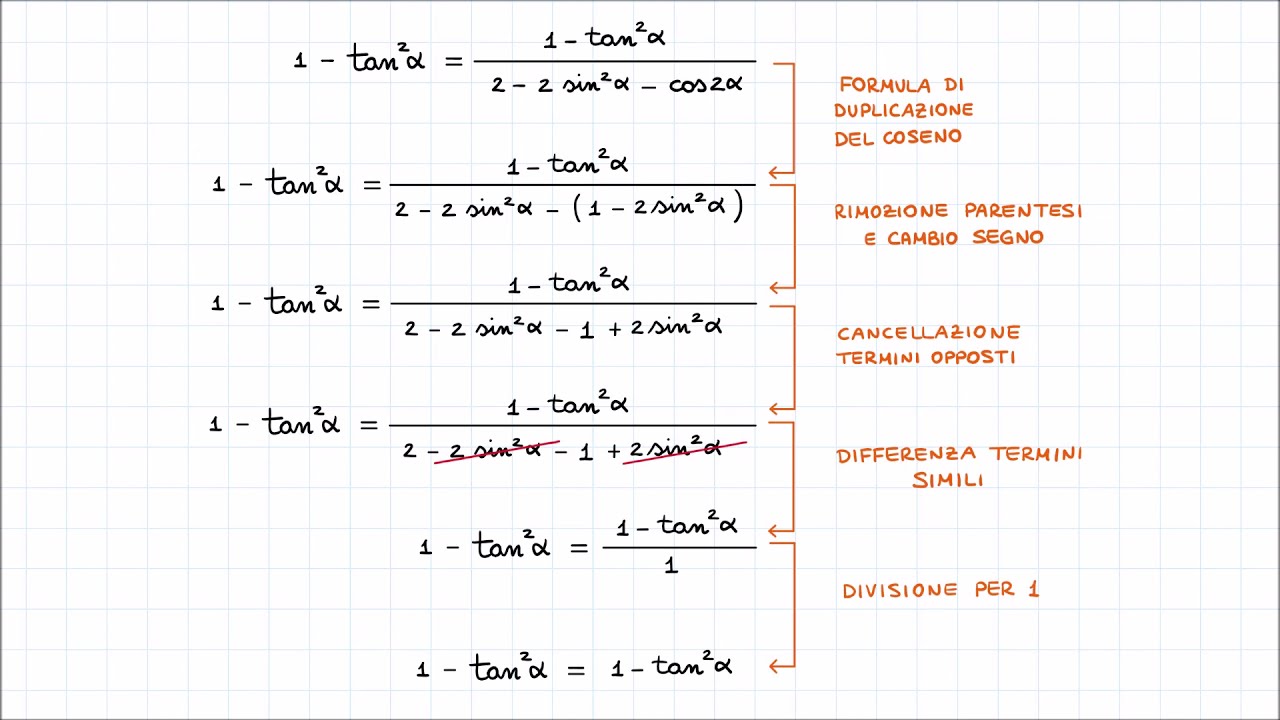 1 - tan²α = (1 - tan²α) / (2 - 2 sin²α - cos2α)
FORMULA DI
DUPLICAZIONE
DEL COSENO
1 - tan²α = (1 - tan²α) / (2 - 2 sin²α - (1 - 2 sin²α))
RIMOZIONE PARENTESI
E CAMBIO SEGNO
1 - tan²α = (1 - tan²α) / (2 - 2 sin²α - 1 + 2 sin²α)
CANCELLAZIONE
TERMINI OPPOSTI
1 - tan²α = (1 - tan²α) / (2 - 2 sin²α - 1 + 2 sin²α)
DIFFERENZA TERMINI
SIMILI
1 - tan²α = (1 - tan²α) / 1
DIVISIONE PER 1
1 - tan²α = 1 - tan²α